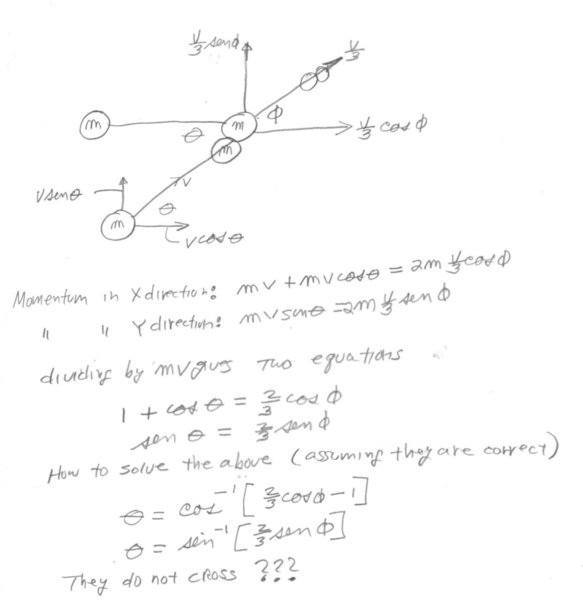 V/3 senϕ
V/3
m
m
ϕ
θ
V/3 cosϕ
m
V senθ
V
θ
m
V cosθ
Momentum in X direction: mv + mv cosθ = 2m V/3 cosϕ
" " Y direction: mv sinθ = 2m V/3 senϕ
dividing by mv gives Two equations
1 + cosθ = 2/3 cosϕ
senθ = 2/3 senϕ
How to solve the above (assuming they are correct)
θ = cos⁻¹ [2/3 cosϕ - 1]
θ = sin⁻¹ [2/3 senϕ]
They do not cross ???